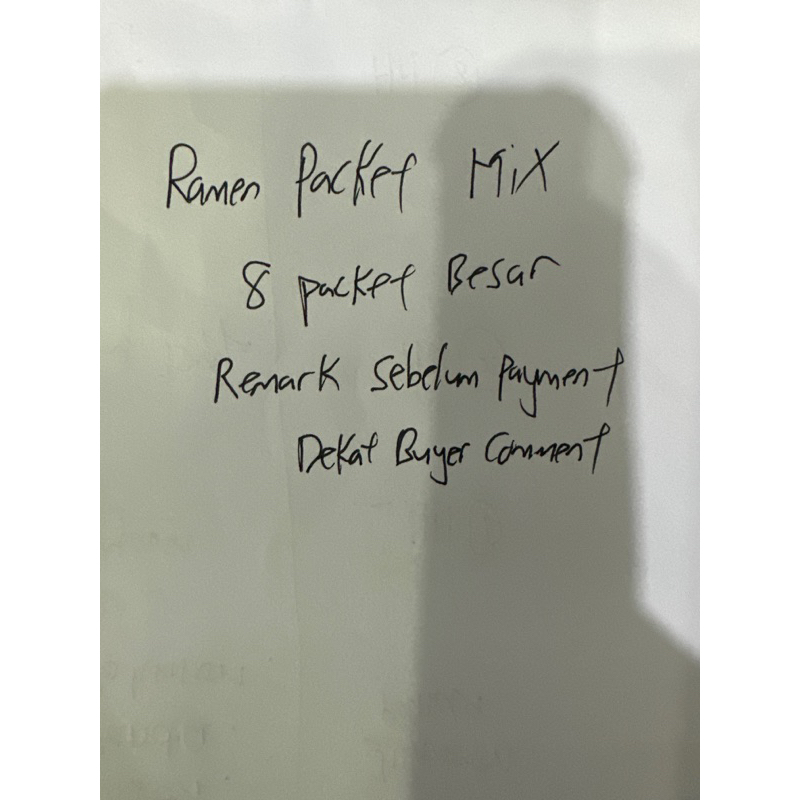 Ramen Packet MiX
8 packet Besar
Remark Sebelum Payment
Dekat Buyer Comment